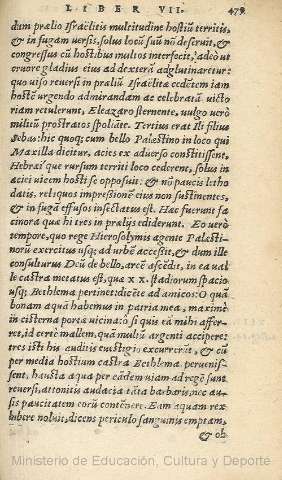 LIBER VII. 479
dam prælio Israëlitis multitudine hostiũ territis,
& in fugam versis, solus locũ suũ nõ deseruit, &
congressus cũ hostibus multos interfecit, adeò ut
cruore gladius eius ad dexterã adglutinaretur:
quo uiso reuersi in præliũ Israëlitæ cedẽtem iam
hostẽ urgendo admirandam ac celebratã uicto
riam retulerunt, Eleazaro sternente, uulgo uerò
militũ prostratos spoliãte. Tertius erat Ili filius
Sebas: hic quoq; cum bello Palæstino in loco qui
Maxilla dicitur, acies ex aduerso constitissent,
Hebræi que rursum territi loco cederent, solus in
acici uicem hosti se opposuit: & nõ paucis letho
datis, reliquos impreßionẽ eius non sustinentes,
& in fugã effusos insectatus est. Hæc fuerunt fa
cinora quæ hi tres in prælijs ediderunt. Eo uerò
tempore, quo rege Hierosolymis agente Palæsti-
norũ exercitus usq; ad urbẽ accessit, & dum ille
consulturus Deũ de bello, arcẽ ascẽdit, in ea ual
le castra metatus est, quæ xx. stadiorum spacio
usq; Bethlema pertinet: dicitẽ ad amicos: O quã
bonam aquã habemus in patria mea, maximè
in cisterna portæ uicina: ò si quis eã mihi affer-
ret, id certè mallem, quã multũ argenti accipere:
tres isti his auditis euestigiò excurrerũt, & cũ
per media hostium castra Bethlema peruenis-
sent, hausta aqua per eãdem uiam ad regẽ sunt
reuersi, attonitis audacia tãta barbaris, nec au-
sis paucitatem eorũ contẽnere. Eam aquam rex
bibere noluit, dicens periculo sanguinis emptam,
& ob
Ministerio de Educación, Cultura y Deporte